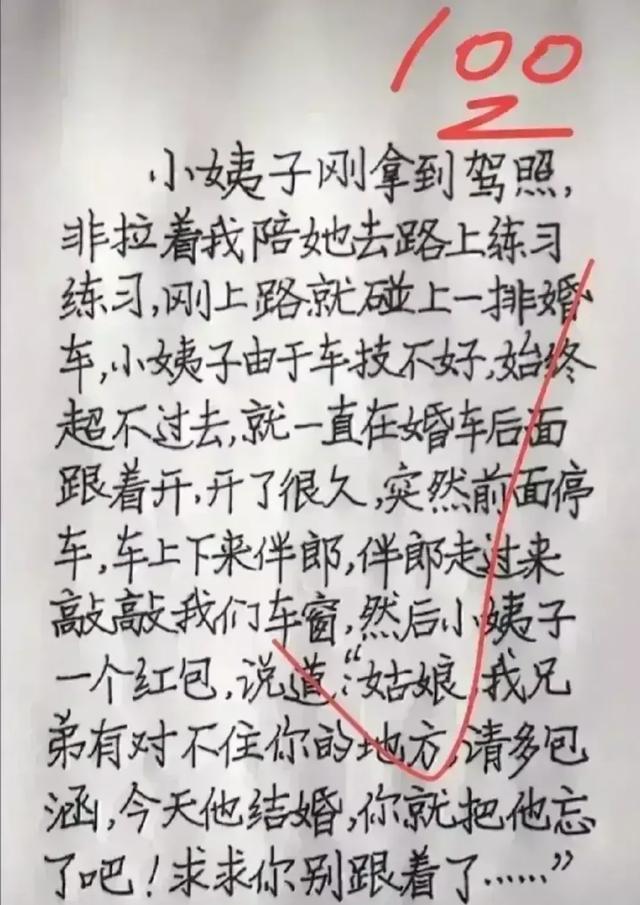 100
小姨子刚拿到驾照,
非拉着我陪她去路上练习
练习,刚上路就碰上一排婚
车,小姨子由于车技不好,始终
超不过去,就一直在婚车后面
跟着开,开了很久,突然前面停
车,车上下来伴郎,伴郎走过来
敲敲我们车窗,然后小姨子
一个红包,说道:“姑娘,我兄
弟有对不住你的地方,请多包
涵,今天他结婚,你就把他忘
了吧!求求你别跟着了......”